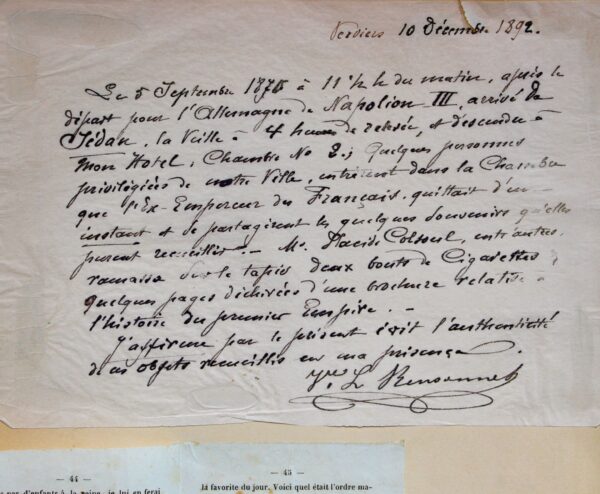 Verviers 10 Décembre 1892.
Le 5 Septembre 1870 à 11 ½ h du matin, après le
départ pour l'Allemagne de Napoléon III, arrivé de
Sédan, la Veille à 4 heures de relevée, et descendu à
mon Hotel, Chambre No 2; Quelques personnes
privilégiées de notre Ville, entrèrent dans la Chambre
que l'Ex-Empereur des Français, quittait d'un
instant et se partagèrent les quelques Souvenirs qu'elles
purent recueillir. — Mr. Placide entr'autres,
ramassa sur le tapis deux bouts de Cigarettes &
quelques pages déchirées d'une brochure relative à
l'histoire du premier Empire. —
J'affirme par le présent écrit l'authenticité
de ces objets recueillis en ma présence.
Ve L
— 44 — — 45 —
d'enfants à la reine, je lui en ferai la favorite du jour. Voici quel était l'ordre ma-